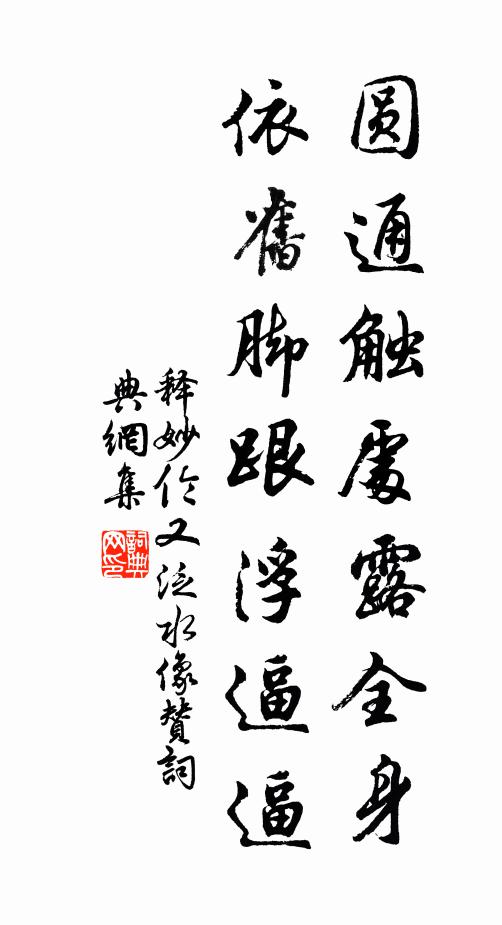 圆通触處露全身
依舊脚跟浮逼逼
释妙伦又泛水像贊詞
典網集
詞典网印